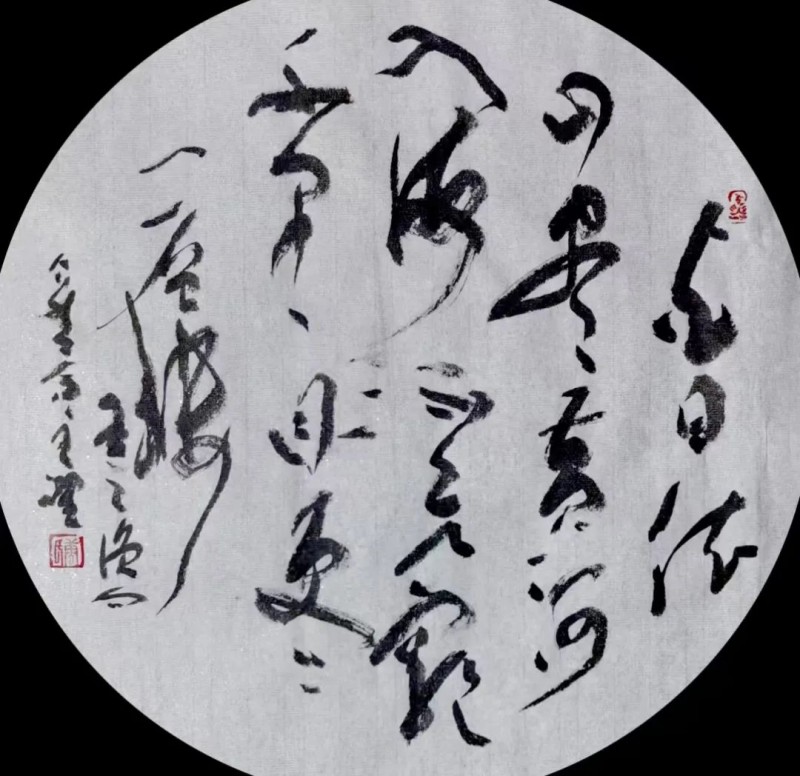 白日依
山尽黄河
入海流欲窮
千里目更上
一层楼
王之涣